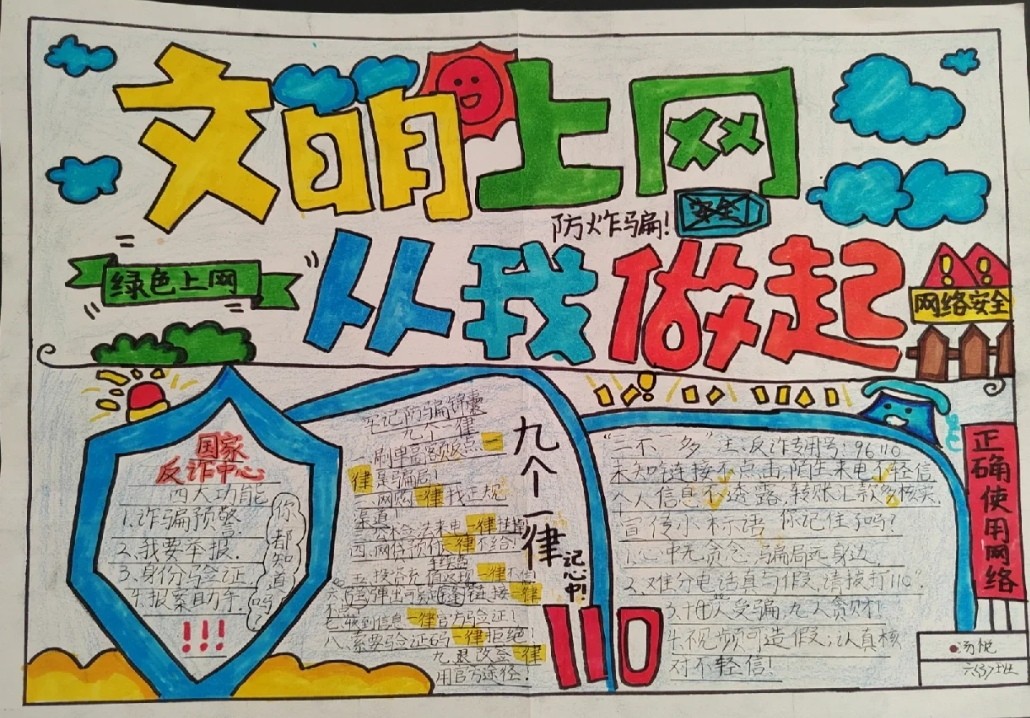 文明上网
防炸骗!
安全
绿色上网
从我做起
网络安全
国家
反诈中心
四大功能
1.诈骗预警
2.我要举报.
3.身份验证.
4.报案助手.
!!!
你都知道吗?
牢记防骗锦囊
九个一律
一.刷单
一律是骗局!
二.网购一律找正规
渠道!
一律挂
四.网贷
一律不给!
一律不信
一律
七.收到信息一律官方验证!
八.索要验证码一律拒绝!
九.退改签一律
用官方途径.
九个一律
记心中!
110
"三不一多" 主:反诈专用号:96110
未知链接不点击,陌生来电不轻信
个人信息不透露.转账汇款多核实.
宣传小标语 你记住了吗?
1.心中无贪念,骗局远身边.
2.难分电话真与假.请拨打110.
受骗,九人贪财!
4.视频可造假,认真核
对不轻信!
正确使用网络